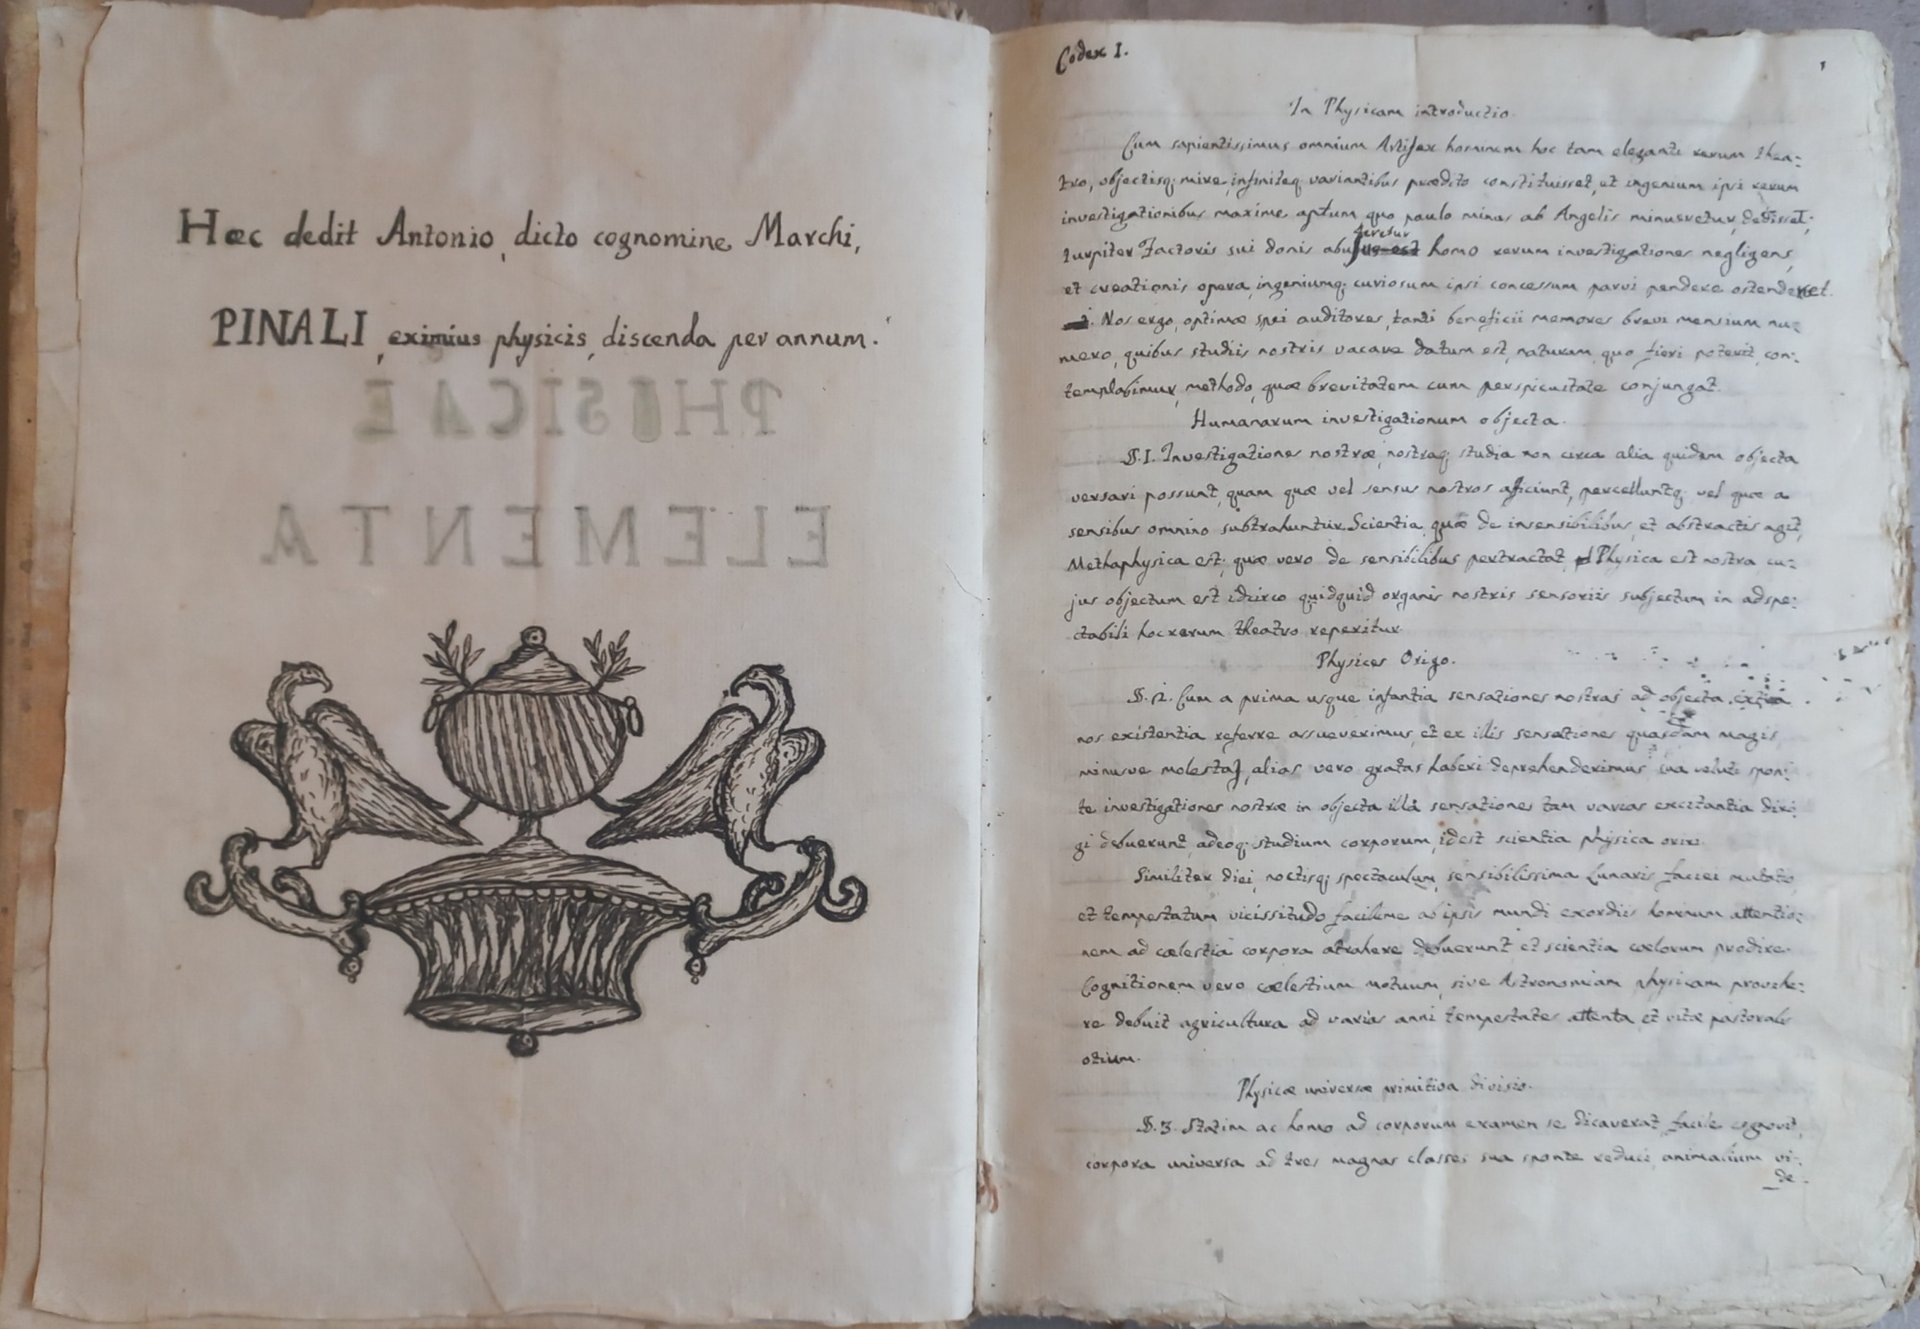 Hæc dedit Antonio, dicto cognomine Marchi,
PINALI, eximius physicis, discenda per annum.
PHISICAE
ELEMENTA
Codex I.
1
In Physicam introductio.
Cum sapientissimus omnium Artifex hominem hoc tam eleganti rerum thea:
tro, objectisq; mire, infiniteq; variantibus prædito constituisset, et ingenium ipsi rerum
investigationibus maxime aptum, quo paulo minus ab Angelis minueretur, dedisset;
teretur
turpiter Factoris sui donis abusus est homo rerum investigationes negligens,
et creationis opera, ingeniumq; curiosum ipsi concessum parvi pendere ostenderet.
Nos ergo, optimæ spei auditores, tanti beneficii memores brevi mensium nu:
mero, quibus studiis nostris vacare datum est, naturam, quo fieri poterit, con:
templabimur, methodo, quæ brevitatem cum perspicuitate conjungat.
Humanarum investigationum objecta.
§. 1. Investigationes nostræ, nostraq; studia non circa alia quidem objecta
versari possunt, quam quæ vel sensus nostros afficiunt, percelluntq; vel quæ a
sensibus omnino subtrahuntur. Scientia, quæ de insensibilibus, et abstractis agit,
Methaphysica est; quæ vero de sensibilibus pertractat Physica est nostra cu:
jus objectum est idcirco quidquid organis nostris sensoriis subjectum in adspe:
ctabili hoc rerum theatro reperitur.
Physices Origo.
§. 2. Cum a prima usque infantia sensationes nostras ad objecta extra
nos existentia referre assueverimus, et ex illis sensationes quasdam magis,
minusve molestas, alias vero gratas haberi deprehenderimus sua veluti spon:
te investigationes nostræ in objecta illa sensationes tam varias excitantia diri:
gi debuerunt, adeoq; studium corporum, idest scientia physica oriri.
Similiter diei, noctisq; spectaculum, sensibilissima Lunaris faciei mutatio,
et tempestatum vicissitudo facilime ab ipsis mundi exordiis hominum attentio:
nem ad cœlestia corpora atrahere debuerunt et scientia cœlorum prodire.
Cognitionem vero cœlestium motuum, sive Astronomiam physicam provehe:
re debuit agricultura ad varias anni tempestates attenta, et vitæ pastoralis
otium.
Physicæ universæ primitiva divisio.
§. 3. Statim ac homo ad corporum examen se dicaverat, facile cognovit,
corpora universa ad tres magnas classes sua sponte reduci, animalium vi:
de